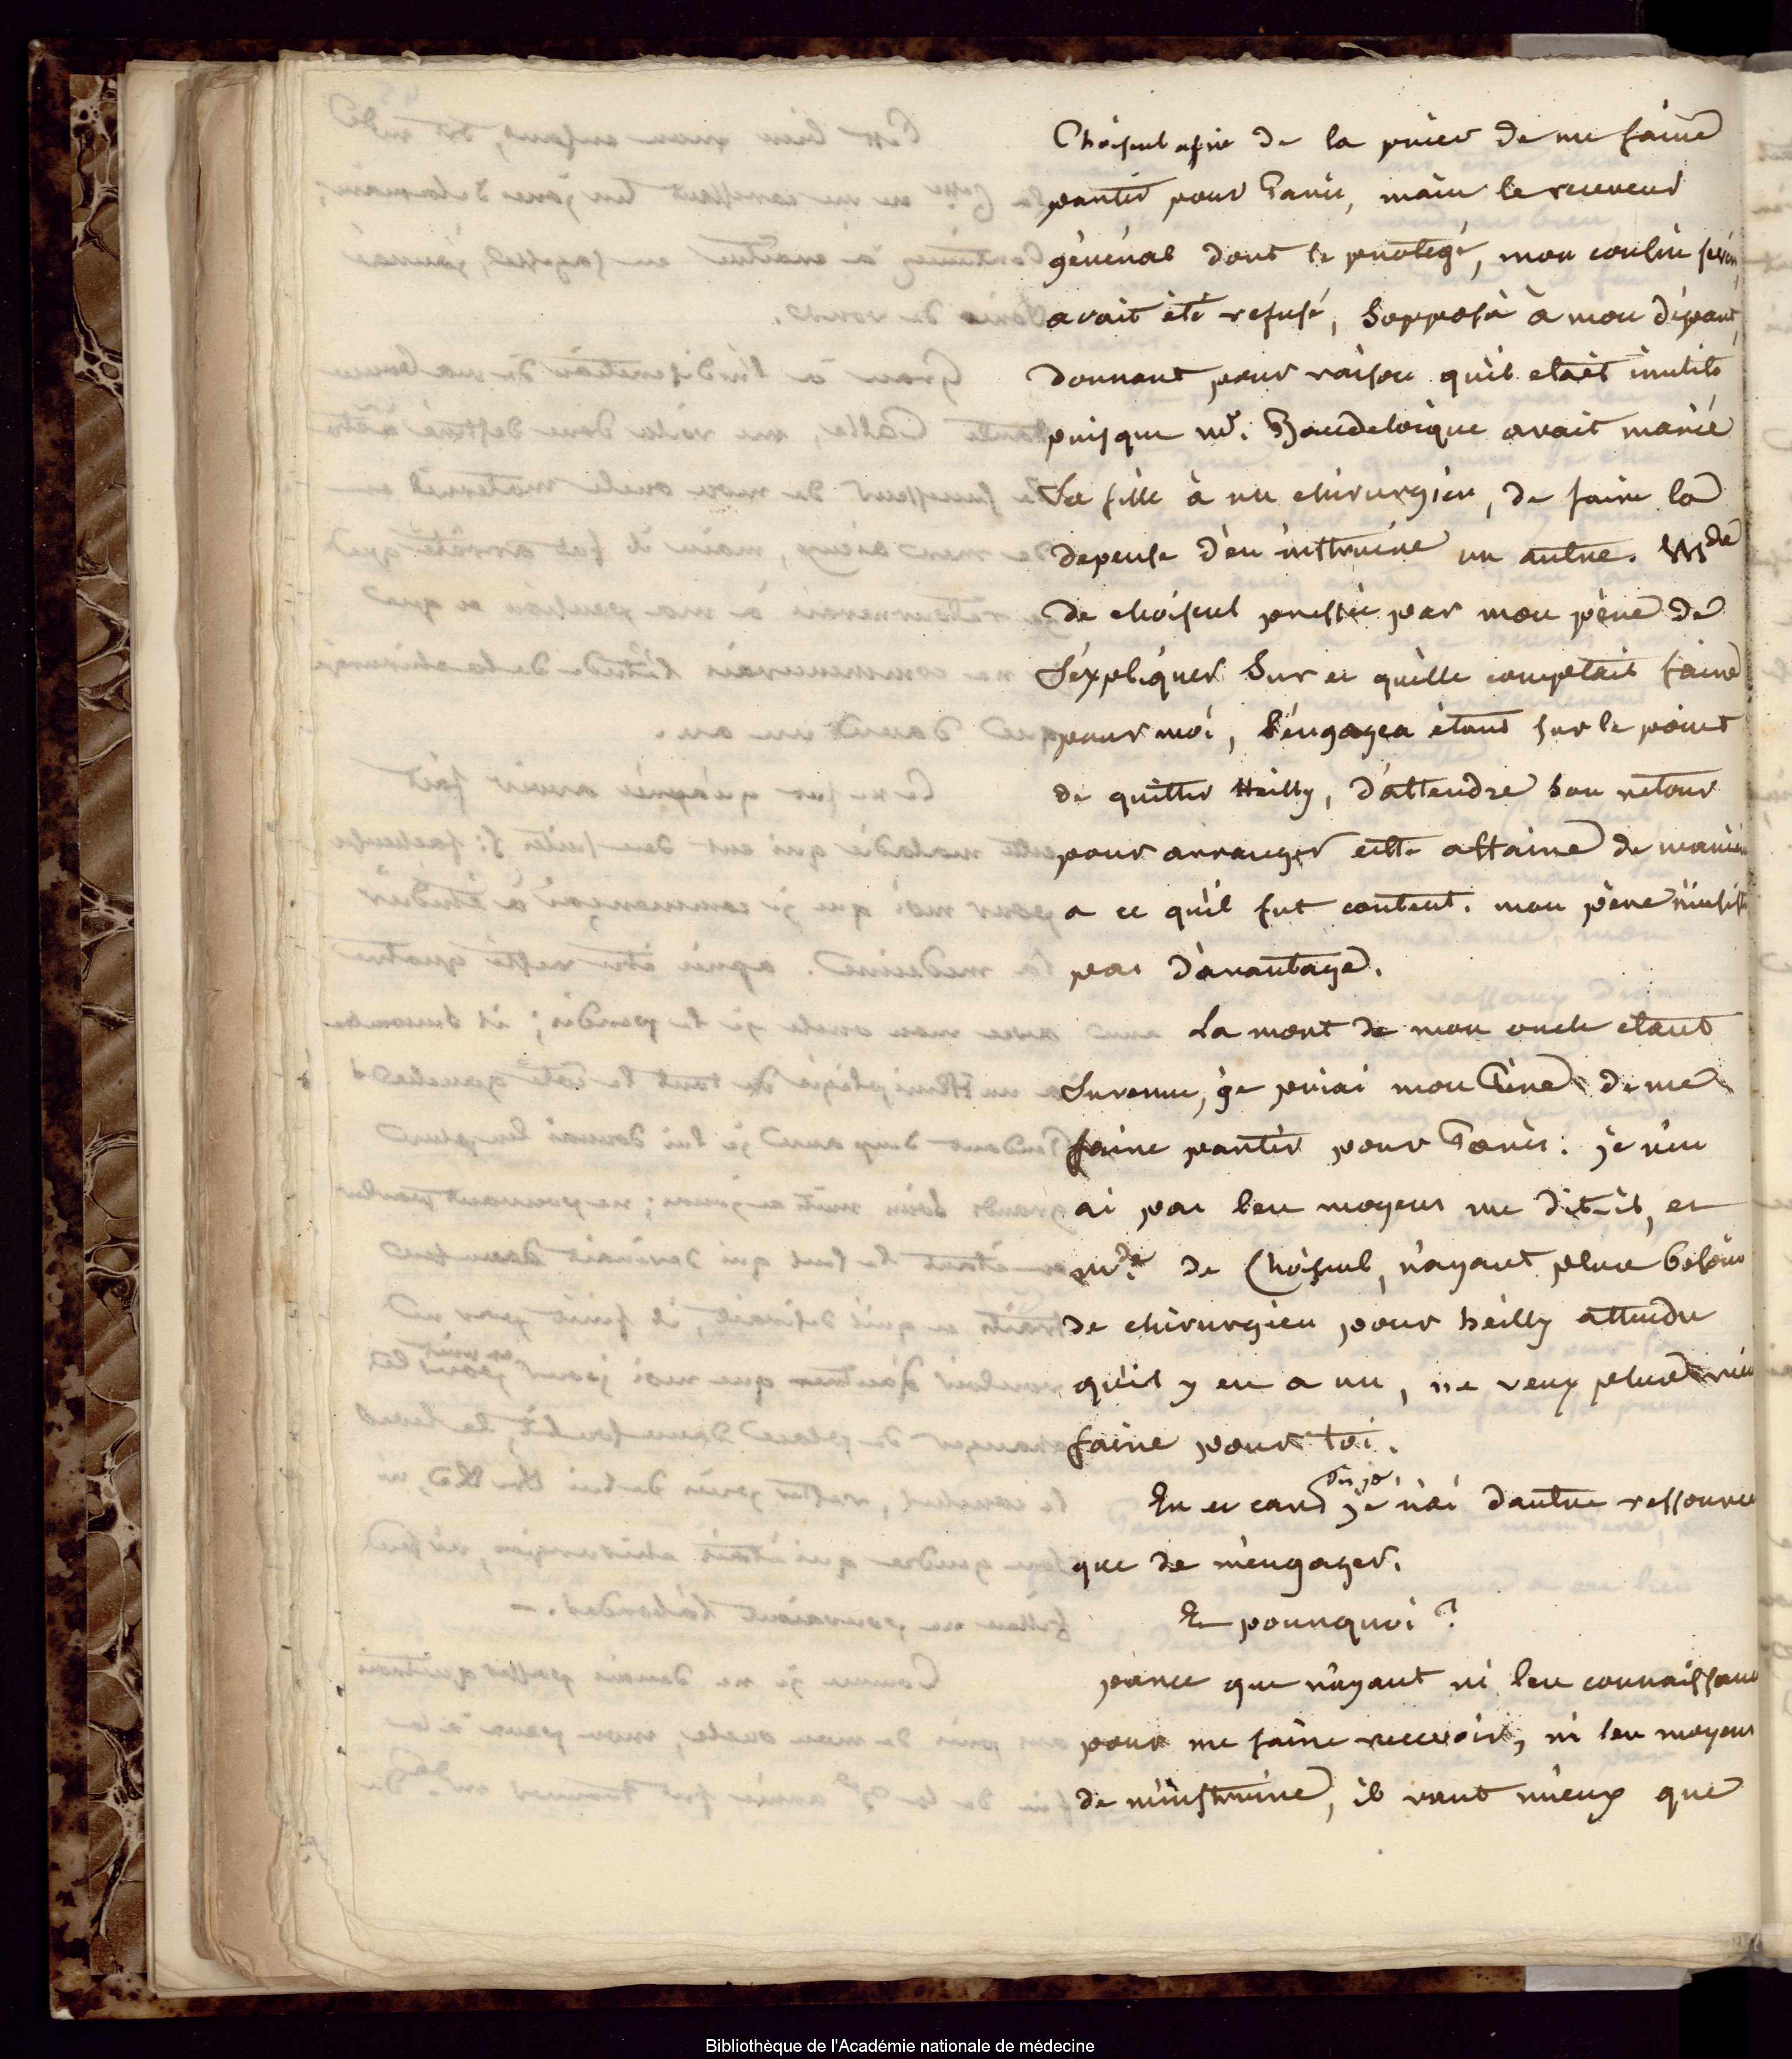 Choiseul afin de la prier de me faire
partir pour Paris, mais le receveur
général dont le protegé, mon cousin
avait été refusé, s'opposa à mon départ,
donnant pour raison qu'il etait inutile
puisque mr. Baudelocque avait marié
sa fille à un chirurgien, de faire la
depense d'en instruire un autre. Mde
de choiseul pressée par mon père de
s'expliquer sur ce qu'elle comptait faire
pour moi, l'engagea étant sur le point
de quitter Heilly, d'attendre son retour
pour arranger cette affaire de maniere
a ce qu'il fut content. mon père n'insista
pas d'avantage.
La mort de mon oncle etant
survenue, je priai mon Père de me
faire partir pour Paris: je n'en
ai pas les moyens me dit-il, et
mde. de Choiseul, n'ayant plus besoin
de chirurgien pour heilly attendu
qu'il y en a un, ne veux plus rien
faire pour toi.
En ce cas dis-je, je n'ai d'autre ressource
que de m'engager.
Et pourquoi?
parce que n'ayant ni les connaissances
pour me faire recevoir, ni les moyens
de m'instruire, il vaut mieux que
Bibliothèque de l'Académie nationale de médecine